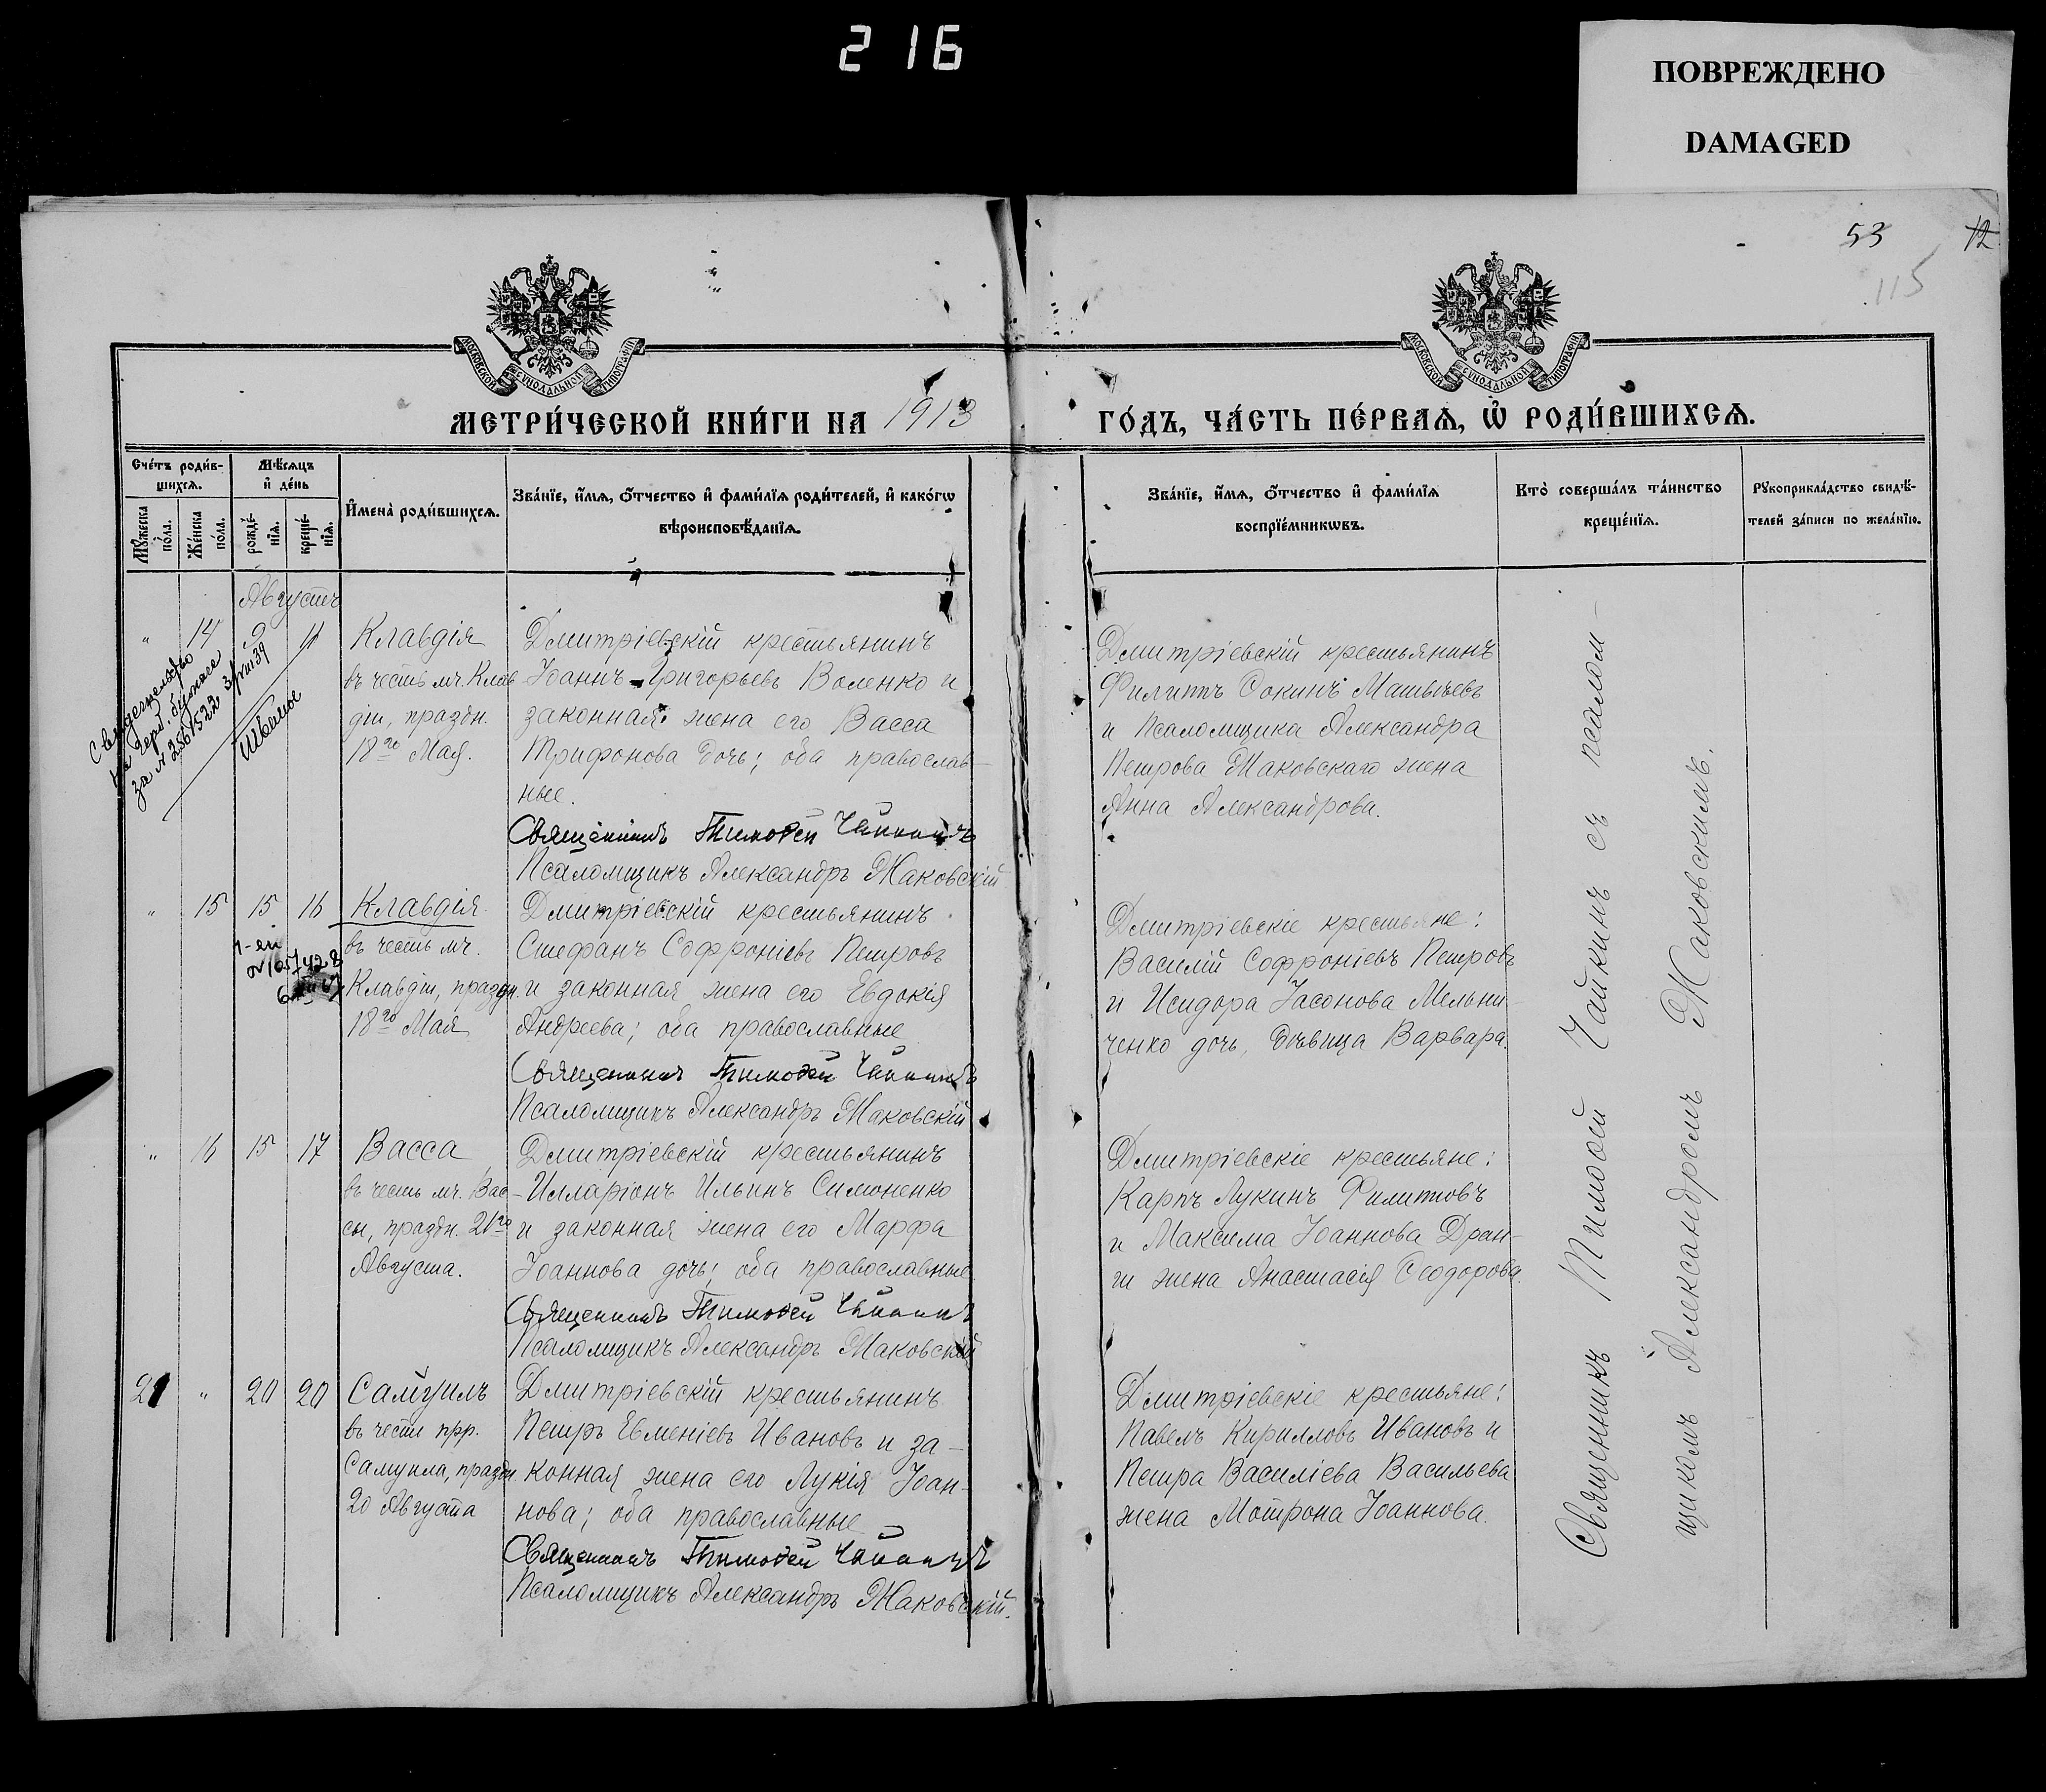 216
ПОВРЕЖДЕНО
DAMAGED
53 12
115
МОСКОВСКОЙ СѴНОДАЛЬНОЙ ТИПОГРАФІИ
МОСКОВСКОЙ СѴНОДАЛЬНОЙ ТИПОГРАФІИ
МЕТРИ́ЧЕСКОЙ КНИ́ГИ НА 1913
ГО́ДЪ, ЧА́СТЬ ПЕ́РВАѦ, Ѽ РОДИ́ВШИХСѦ.
Сче́тъ роди́в-
шихсѧ.
Мѣ́сѧцъ
и҆ де́нь
Мꙋ́жеска по́ла.
Же́нска по́ла.
рожде́-
нїѧ.
креще́-
нїѧ.
И҆мена̀ роди́вшихсѧ.
Зва́нїе, и҆́мѧ, ѻ҆́тчество и҆ фами́лїѧ роди́телей, и҆ како́гѡ
вѣроисповѣ́данїѧ.
Зва́нїе, и҆́мѧ, ѻ҆́тчество и҆ фами́лїѧ
воспрїе́мникѡвъ.
Кто̀ соверша́лъ та́инство
креще́нїѧ.
Рꙋкоприкла́дство свидѣ́-
телей за́писи по жела́нїю.
Августъ
" 14 9 11 Клавдія
въ честь мч. Клав
діи, праздн.
18го Мая.
Дмитріевскій крестьянинъ
Іоаннъ Григорьевъ Воленко и
законная жена его Васса
Трифонова дочь; оба православ-
ные.
Священникъ Тимоѳей Чайкинъ
Псаломщикъ Александръ Жаковскій
Дмитріевскій крестьянинъ
Филиппъ Сокинъ Матвѣевъ
и Псаломщика Александра
Петрова Жаковскаго жена
Анна Александрова.
Свидетельство
за № 2561522
" 15 15 16 Клавдія
въ честь мч.
Клавдіи, праздн.
18го Мая
Дмитріевскій крестьянинъ
Стефанъ Софроніевъ Петровъ
и законная жена его Евдокія
Андреева; оба православные
Священникъ Тимоѳей Чайкинъ
Псаломщикъ Александръ Жаковскій
Дмитріевскіе крестьяне:
Василій Софроніевъ Петровъ
и Исидора Іасонова Мельни-
ченко дочь, дѣвица Варвара.
" 16 15 17 Васса
въ честь мч. Вас-
сы, праздн. 21го
Августа.
Дмитріевскій крестьянинъ
Илларіонъ Ильинъ Симоненко
и законная жена его Марфа
Іоаннова дочь; оба православные
Священникъ Тимоѳей Чайкинъ
Псаломщикъ Александръ Жаковскій
Дмитріевскіе крестьяне:
Карпъ Лукинъ Филиповъ
и Максима Іоаннова Дран-
ги жена Анастасія Ѳеодорова.
21 " 20 20 Самуилъ
въ честь прр.
Самуила, праздн.
20 Августа
Дмитріевскій крестьянинъ
Петръ Евменіевъ Ивановъ и за-
конная жена его Лукія Іоан-
нова; оба православные
Священникъ Тимоѳей Чайкинъ
Псаломщикъ Александръ Жаковскій.
Дмитріевскіе крестьяне:
Павелъ Кирилловъ Ивановъ и
Петра Василіева Васильева
жена Мотрона Іоаннова.
Священникъ Тимоѳей Чайкинъ съ псалом-
щикомъ Александромъ Жаковскимъ.